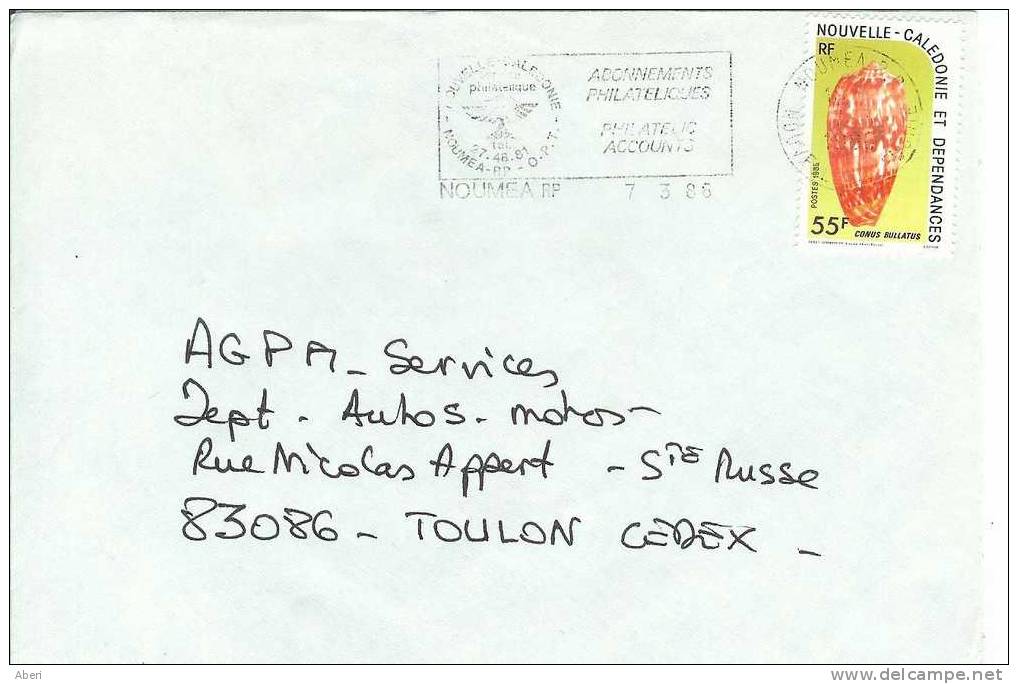 NOUVELLE-CALEDONIE ET DEPENDANCES
RF
POSTES 1985
55F
CONUS BULLATUS
NOUVELLE-CALEDONIE
philatelique
Tél.
27.46.81
NOUMEA-RP - O.P.T.
ABONNEMENTS
PHILATELIQUES
PHILATELIC
ACCOUNTS
NOUMEA RP 7 3 86
NOUMEA R.P.
AGPM - Services
Dept - Autos - motos -
Rue Nicolas Appert - STE Musse
83086 - TOULON CEDEX -
Aberi
www.delcampe.net